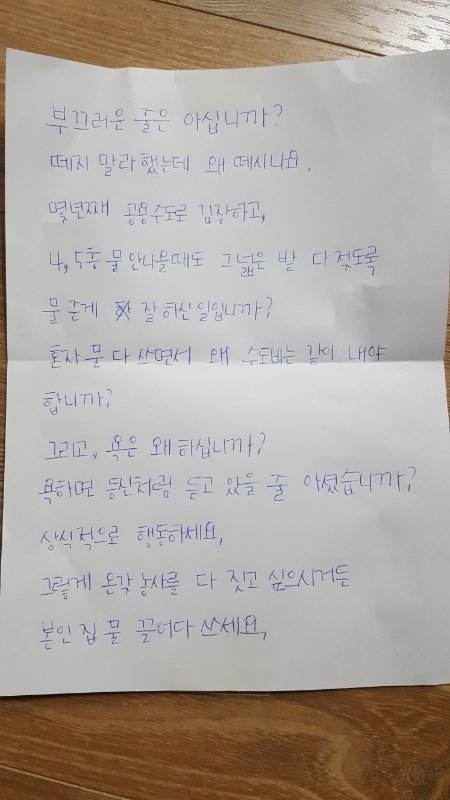 부끄러운 줄은 아십니까?
떼지 말라 했는데 왜 떼시나요.
몇년째 공용수도로 김장하고,
4,5층 물 안나올때도 그 넓은 밭 다 젖도록
물 준게 잘 하신 일입니까?
혼자 물 다 쓰면서 왜 수도비는 같이 내야
합니까?
그리고, 욕은 왜 하십니까?
욕하면 등신처럼 듣고 있을 줄 아셨습니까?
상식적으로 행동하세요.
그렇게 온갖 농사를 다 짓고 싶으시거든
본인 집 물 끌어다 쓰세요.